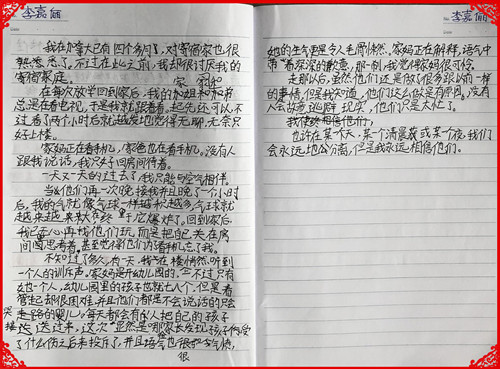 李嘉俪
我在加拿大已有四个多月,对寄宿家也很
熟悉悉了。不过在此之前,我却很讨厌我的
寄宿家庭。
在每次放学回到家后,我的家姐和家弟
总是在看电视,于是我就跟着看,起先还可以,不
过看了两个小时后就越发地觉得无聊,无奈只
好上楼。
家妈还在看手机,家爸也在看手机。没有人
跟我说话,我只好回房间待着。
一天又一天的过去了,我只能与空气相伴。
当他们再一次晚接我并且晚了一个小时
后,我的气就像气球一样越积越多,气球就
越来越大,终于爆炸了。回到家后
我已无心再找他们玩,而是把自己关在房
间图思考着。甚至觉得他们内看手机忘了我。
不知过了多久,有一天,我在楼梢然听到
一个人的训斥声。家妈是开幼儿园的,不过只有
她一个人,幼儿园里的孩子也就七八个,但是看
管起却很困难,并且他们都是不会说话的只会
哭走路的婴儿。每天都会有的人把自己的孩子
接送过来,这次显然是哪家长发现孩子们受
了什么伤之后来投诉了,并且语气也很和气愤,
很
李嘉俪
她的生气里是令人毛骨悚然,家妈正在解释,语气中
带着深深的歉意,那一刻,我觉得家妈很可怜。
走那以后,虽然他们还是做了很多跟以前一样
的事情,但是我知道,他们这么做是有原因。没有
人会故意逃避现实,他们只是大忙了。
我使终相信他们,
也许在某个天、某个清晨或某一夜,我们
会永远地分离,但是我永远相信他们。